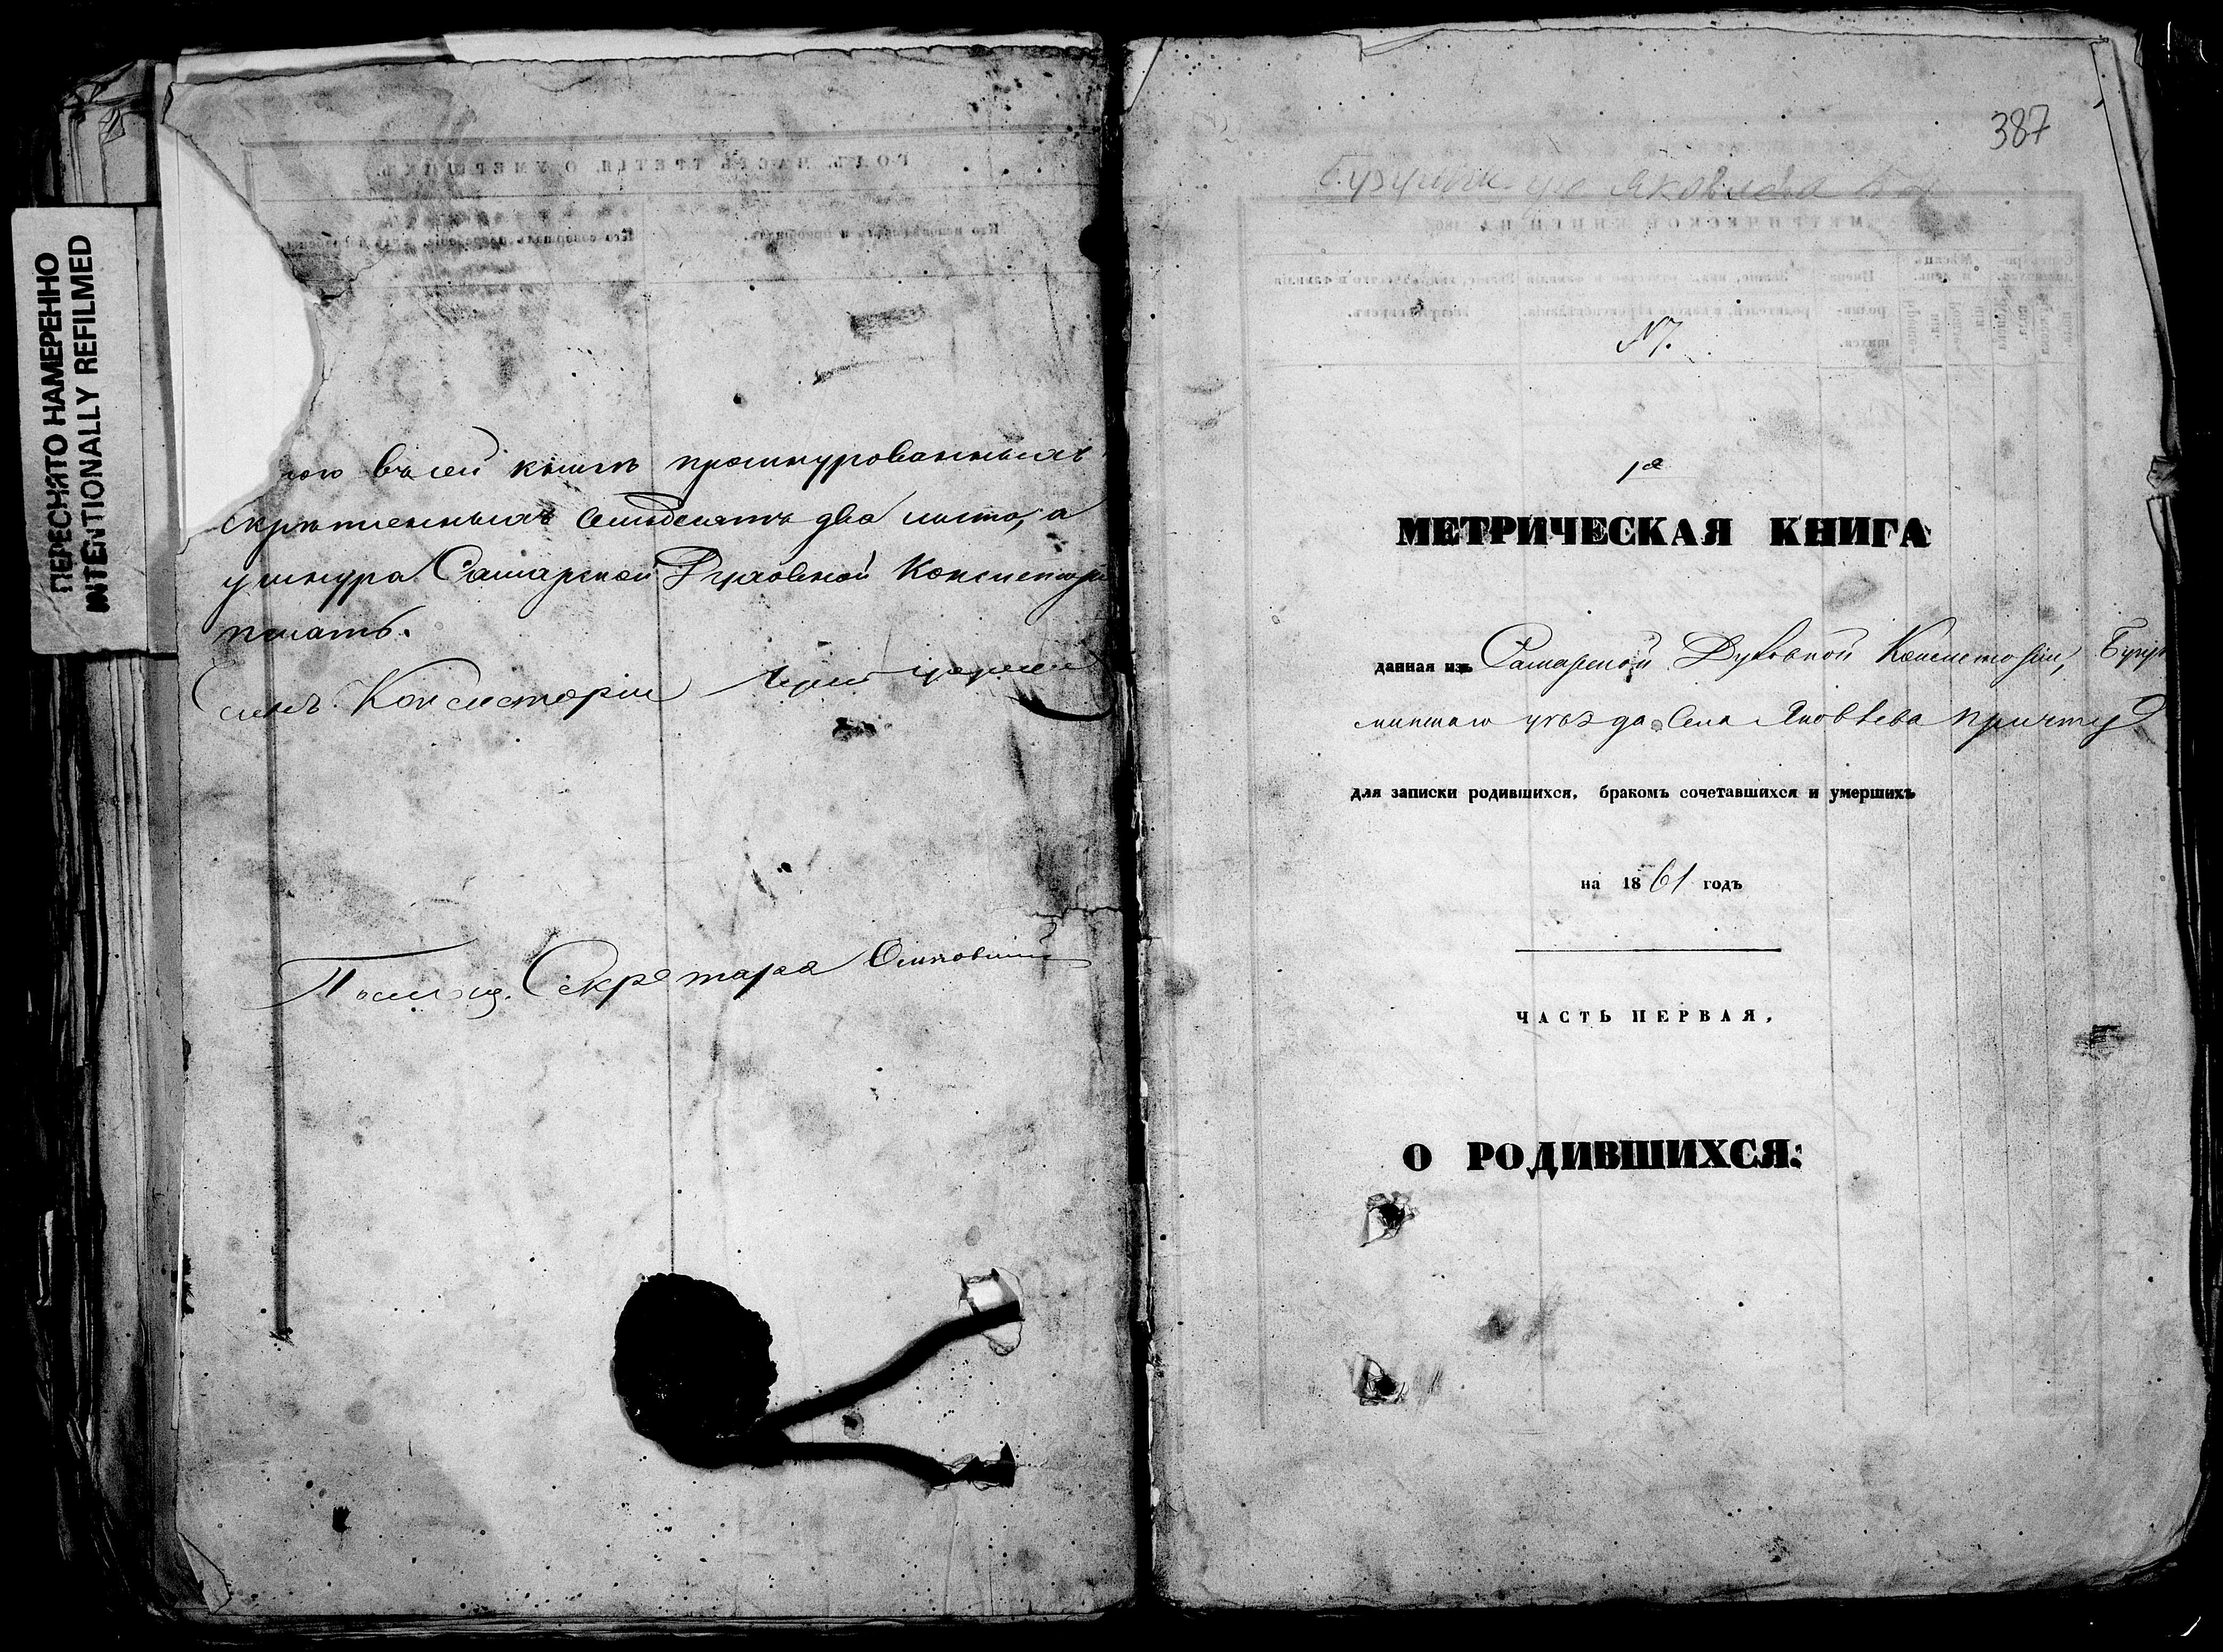 ПЕРЕСНЯТО НАМЕРЕННО
INTENTIONALLY REFILMED
въ сей книгѣ прошнурованныхъ
скрѣпленныхъ семьдесятъ два листа, а
у шнура Самарской Духовной Консисторіи
печать.
Членъ Консисторіи
Помощ. Секретаря
387
Бузулукск. у. с Яковлева
№7.
1я
МЕТРИЧЕСКАЯ КНИГА
данная изъ Самарской Духовной Консисторіи, Бузу
лукскаго уѣзда Села Яковлева причту
для записки родившихся, бракомъ сочетавшихся и умершихъ
на 1861 годъ
ЧАСТЬ ПЕРВАЯ,
О РОДИВШИХСЯ: